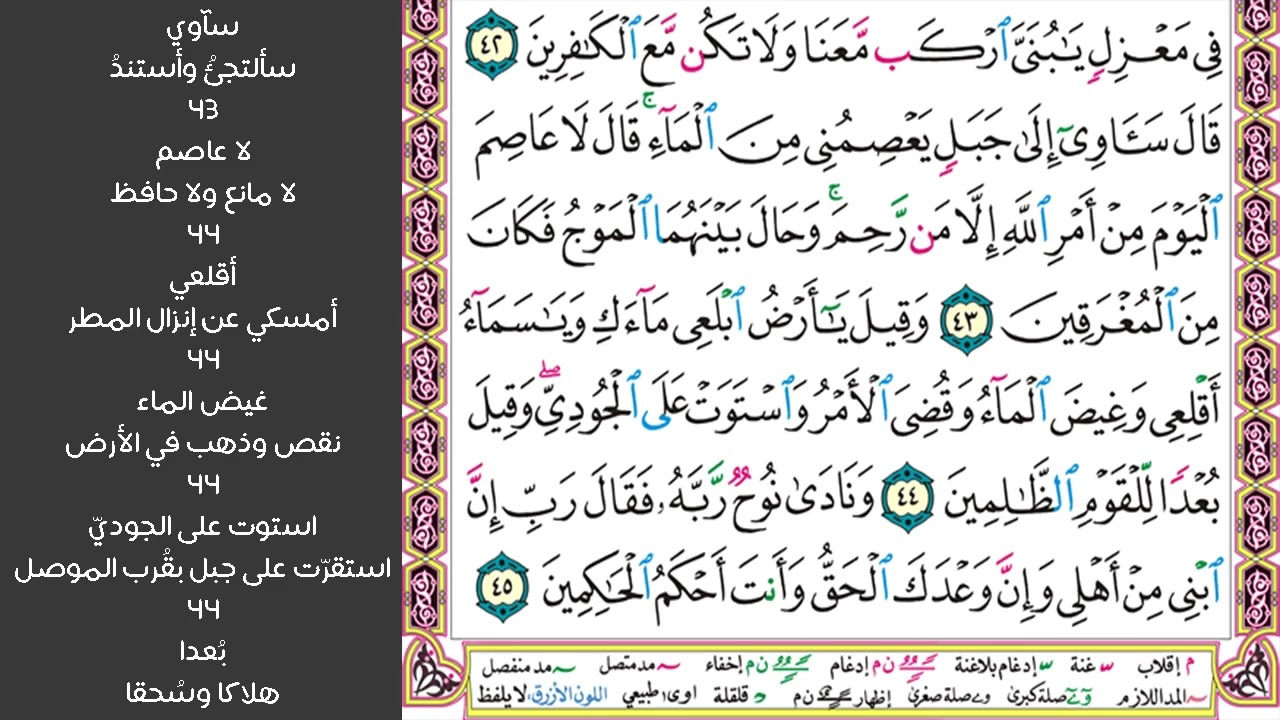 سآوي
سألتجئُ وأستندُ
43
لا عاصم
لا مانع ولا حافظ
44
أقلعي
أمسكي عن إنزال المطر
44
غيض الماء
نقص وذهب في الأرض
44
استوت على الجوديّ
استقرّت على جبل بقُرب الموصل
44
بُعدا
هلاكا وسُحقا
فِي مَعْزِلٍ يَٰبُنَىَّ ٱرْكَب مَّعَنَا وَلَا تَكُن مَّعَ ٱلْكَٰفِرِينَ ٤٢
قَالَ سَـَٔاوِىٓ إِلَىٰ جَبَلٍ يَعْصِمُنِى مِنَ ٱلْمَآءِ ۚ قَالَ لَا عَاصِمَ
ٱلْيَوْمَ مِنْ أَمْرِ ٱللَّهِ إِلَّا مَن رَّحِمَ ۚ وَحَالَ بَيْنَهُمَا ٱلْمَوْجُ فَكَانَ
مِنَ ٱلْمُغْرَقِينَ ٤٣ وَقِيلَ يَٰٓأَرْضُ ٱبْلَعِى مَآءَكِ وَيَٰسَمَآءُ
أَقْلِعِى وَغِيضَ ٱلْمَآءُ وَقُضِىَ ٱلْأَمْرُ وَٱسْتَوَتْ عَلَى ٱلْجُودِىِّ ۖ وَقِيلَ
بُعْدًا لِّلْقَوْمِ ٱلظَّٰلِمِينَ ٤٤ وَنَادَىٰ نُوحٌ رَّبَّهُۥ فَقَالَ رَبِّ إِنَّ
ٱبْنِى مِنْ أَهْلِى وَإِنَّ وَعْدَكَ ٱلْحَقُّ وَأَنتَ أَحْكَمُ ٱلْحَٰكِمِينَ ٤٥
م إقلاب غنة إدغام بلاغنة ن م إدغام ن م إخفاء مد متصل مد منفصل
المد اللازم صلة كبرى صلة صغرى إظهار ن م قلقلة اوى طبيعي اللون الأزرق، لا يلفظ